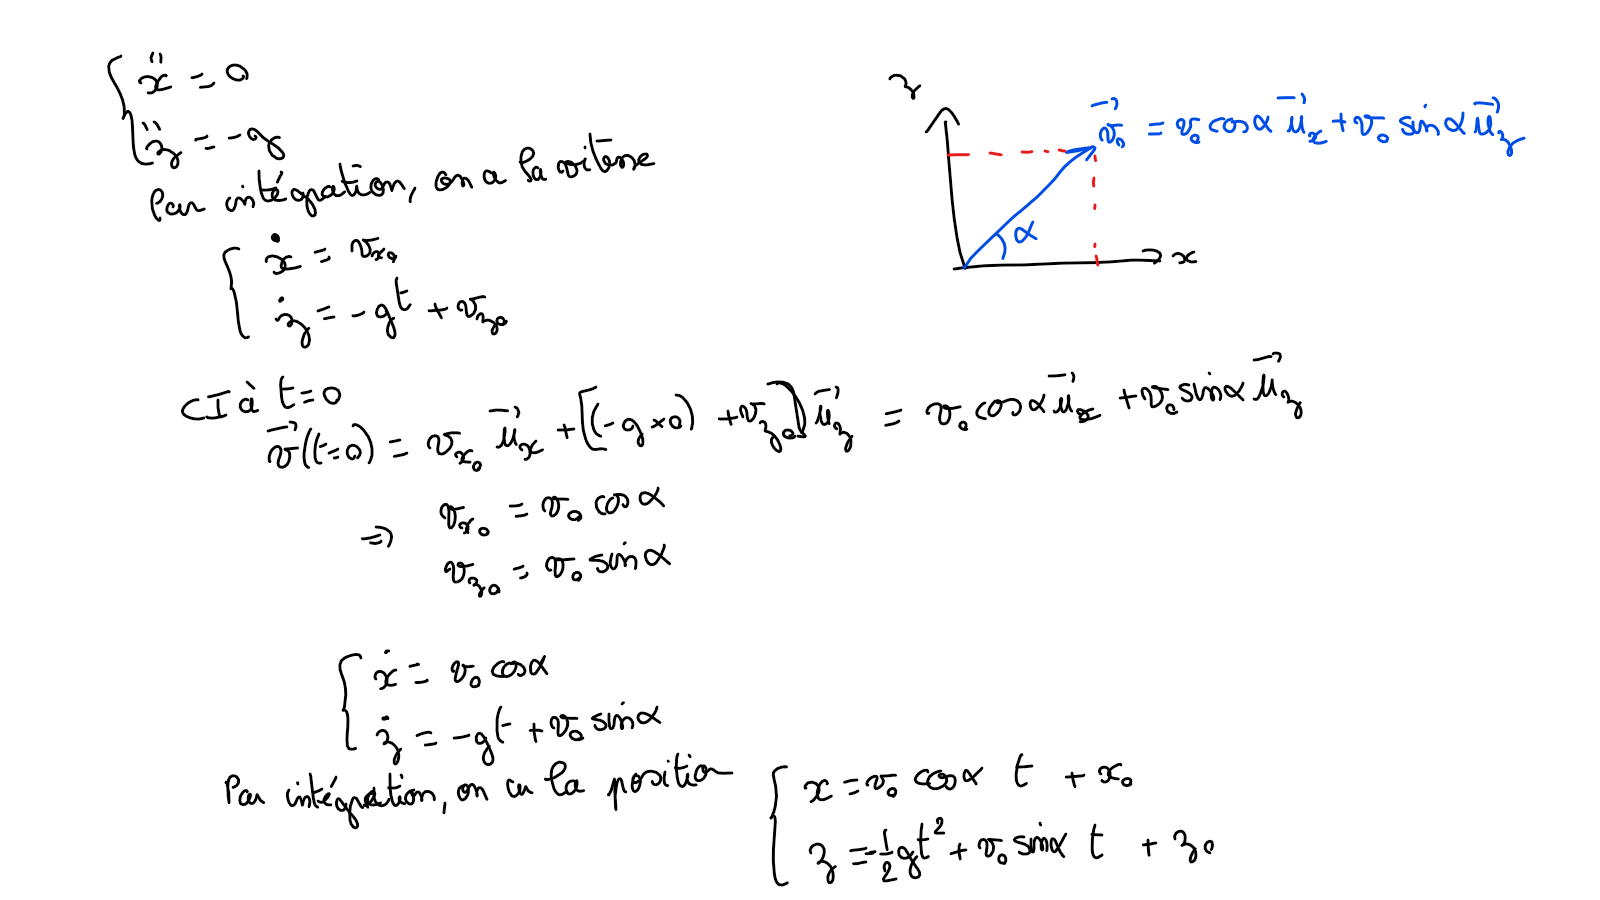 ẍ = 0
z̈ = -g
Par intégration, on a la vitesse
ẋ = v_{x_0}
ż = -gt + v_{z_0}
z
x
α
\vec{v_0} = v_0 cosα \vec{u}_x + v_0 sinα \vec{u}_z
CI à t=0
\vec{v}(t=0) = v_{x_0} \vec{u}_x + [(-g×0) + v_{z_0}] \vec{u}_z = v_0 cosα \vec{u}_x + v_0 sinα \vec{u}_z
v_{x_0} = v_0 cosα
⇒
v_{z_0} = v_0 sinα
ẋ = v_0 cosα
ż = -gt + v_0 sinα
Par intégration, on a la position
x = v_0 cosα t + x_0
z = -\frac{1}{2}gt² + v_0 sinα t + z_0